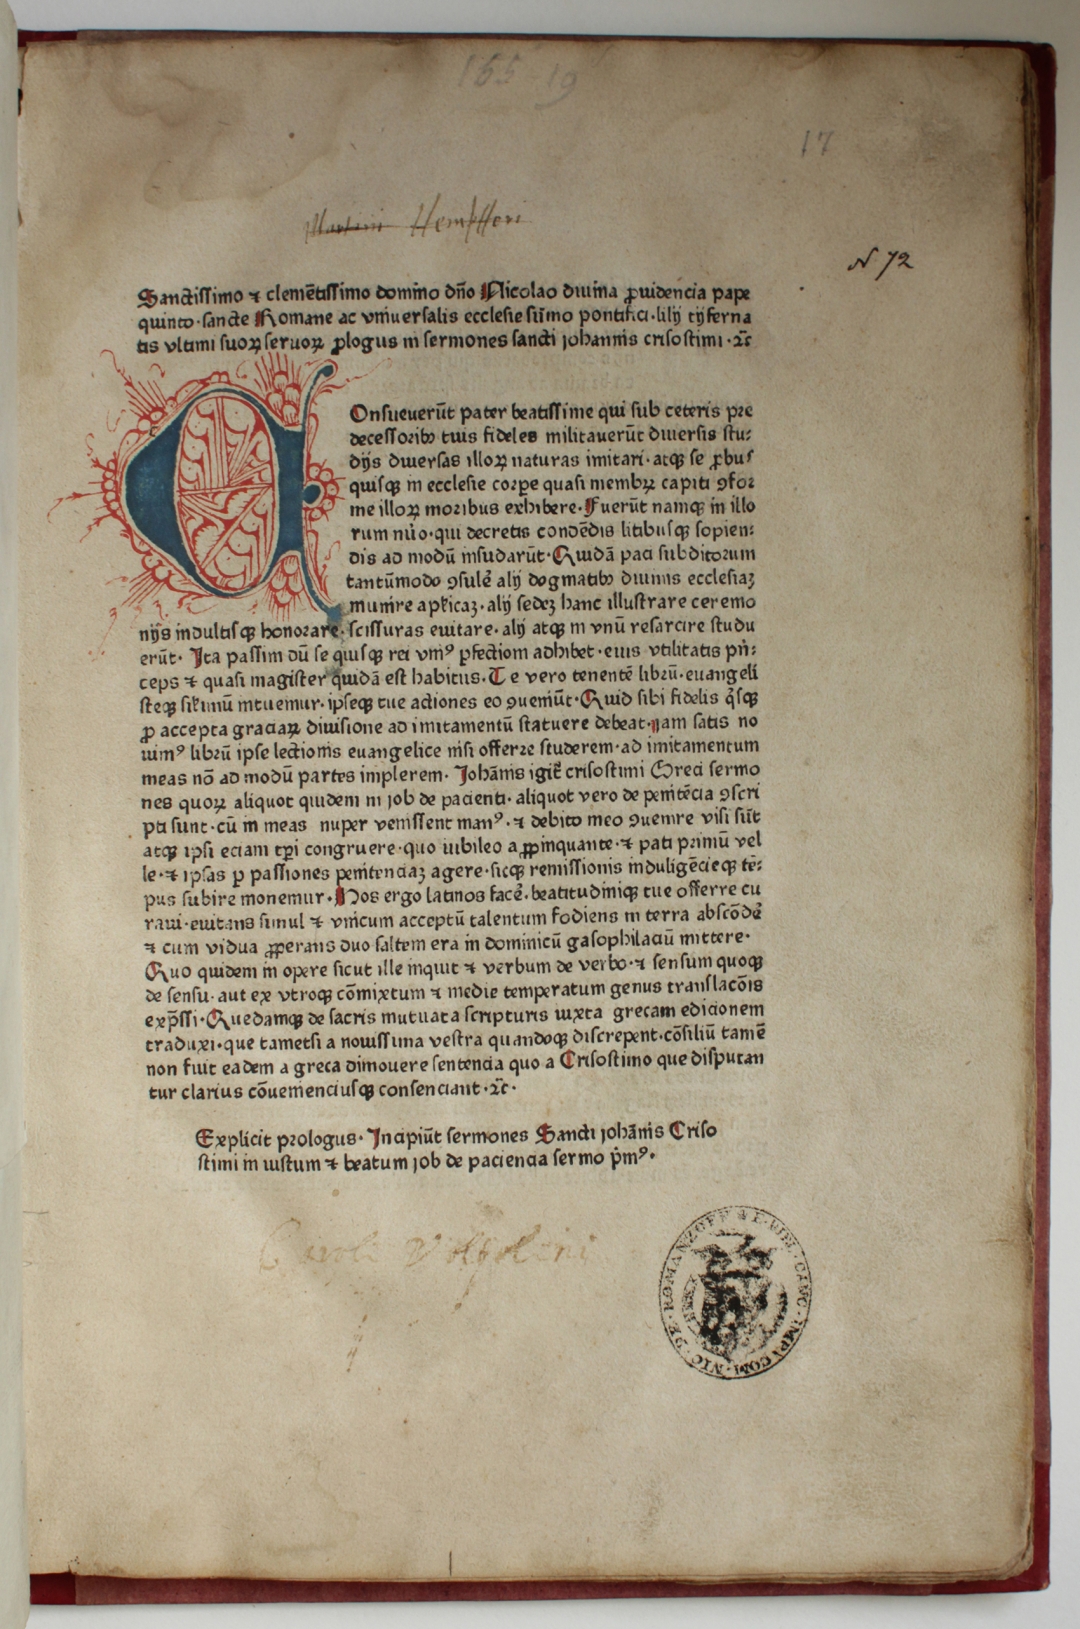 165-19
17
Hemptteri
N 72
Sanctissimo ⁊ clemētissimo domino dño Nicolao diuina ꝓuidencia pape
quinto·sancte Romane ac vniuersalis ecclesie sūmo pontifici·lilij tijferna
tis vltimi suoꝝ seruoꝝ ꝓlogus in sermones sancti johannis crisostimi·⁊c̄
Onsueuerūt pater beatissime qui sub ceteris pre
decessoribꝰ tuis fideles militauerūt diuersis stu:
dijs diuersas illoꝝ naturas imitari·atqꝫ se ꝓbus
quisqꝫ in ecclesie corꝑe quasi membꝝ capiti ꝯfor
me illoꝝ moribus exhibere·Fuerūt namqꝫ in illo
rum nūo·qui decretis condēdis litibusqꝫ sopien:
dis ad modū insudarūt·Quidā paci subditorum
tantūmodo ꝯsulē alij dogmatibꝰ diuinis ecclesiaꝫ
munire apłicaꝫ·alij sedeꝫ hanc illustrare ceremo
nijs indultisqꝫ honorare·scissuras euitare·alij atqꝫ in vnū resarcire studu
erūt· Ita passim dū se quisqꝫ rei vniꝰ ꝑfectiom adhibet·eius vtilitatis pñ:
ceps ⁊ quasi magister quidā est habitus·Te vero tenentē librū·euangeli
steqꝫ sił intuemur·ipseqꝫ tue actiones eo ꝯueniūt·Quid sibi fidelis q̇sqꝫ
ꝓ accepta graciaꝝ diuisione ad imitamentū statuere debeat·nam satis no
uimꝰ librū ipse lectionis euangelice nisi offerre studerem·ad imitamentum
meas nō ad modū partes implerem· Johānis igit̄ crisostimi Greci sermo
nes quoꝝ aliquot quidem in job de pacienti·aliquot vero de penitēcia ꝯscri
pti sunt·cū in meas nuper venissent manꝰ·⁊ debito meo ꝯuenire visi sūt
atqꝫ ipsi eciam tꝑi congruere·quo iubileo aꝓpinquante·⁊ pati primū vel
le·⁊ ipsas ꝑ passiones penitenciaꝫ agere·sicqꝫ remissionis induligēcieqꝫ tē:
pus subire monemur·Hos ergo latinos facē·beatitudiniqꝫ tue offerre cu
raui·euitans simul ⁊ vnicum acceptū talentum fodiens in terra abscōdē
⁊ cum vidua ꝓperans duo saltem era in dominicū gasophilaciū mittere·
Quo quidem in opere sicut ille inquit ⁊ verbum de verbo·⁊ sensum quoqꝫ
de sensu·aut ex vtroqꝫ cōmixtum ⁊ medie temperatum genus translacōis
exp̄ssi·Quedamqꝫ de sacris mutuata scripturis iuxta grecam edicionem
traduxi·que tametsi a nouissima vestra quandoqꝫ discrepent·cōsiliū tamē
non fuit eadem a greca dimouere sentencia quo a Crisostimo que disputan
tur clarius cōueniencius qꝫ consenciant·⁊c̄·
Explicit prologus·Incipiūt sermones Sancti johānis Criso
stimi in iustum ⁊ beatum job de paciencia sermo p̄mꝰ·
Caroli
E·BIBL·CANC·IMP·COM·NIC·DE·ROMANZOFF